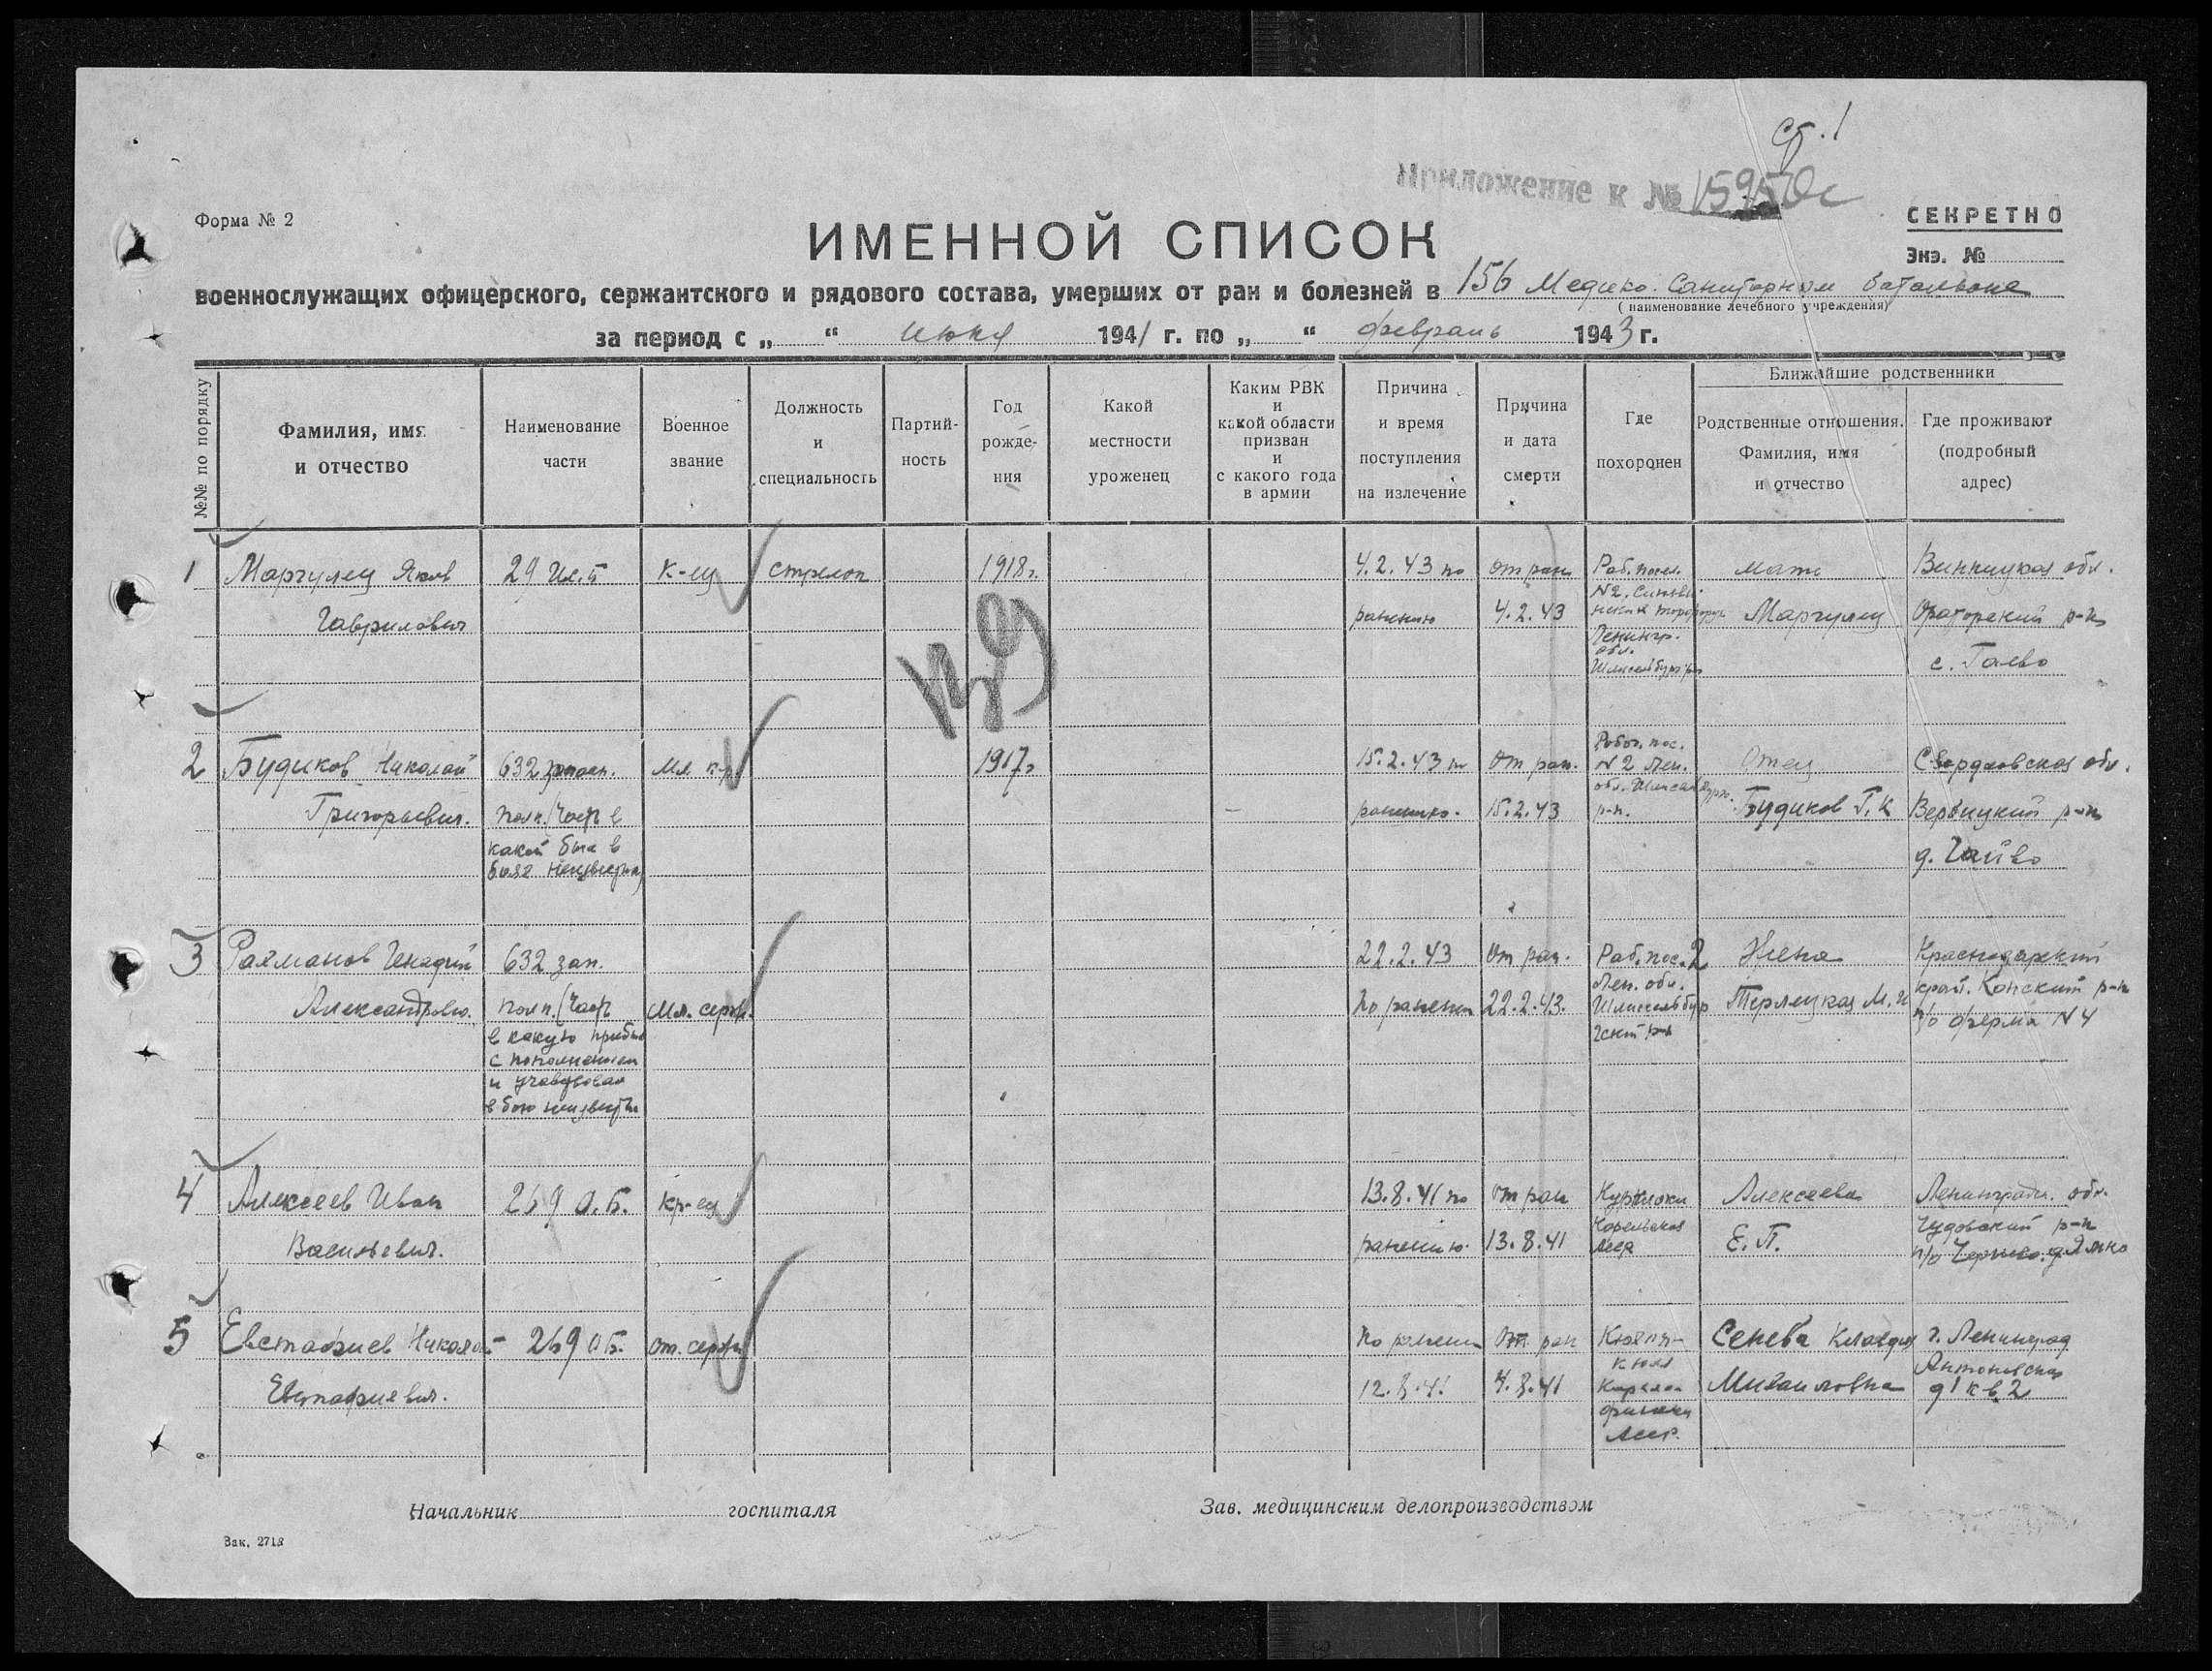 ст. 1
Приложение к № 15950с
Форма № 2
СЕКРЕТНО
ИМЕННОЙ СПИСОК
Экз. №
военнослужащих офицерского, сержантского и рядового состава, умерших от ран и болезней в 156 Медико-Санитарном батальоне
(наименование лечебного учреждения)
за период с „ “ июня 1941 г. по „ “ февраль 1943 г.
№№ по порядку
Фамилия, имя и отчество
Наименование части
Военное звание
Должность и специальность
Партийность
Год рождения
Какой местности уроженец
Каким РВК и какой области призван и с какого года в армии
Причина и время поступления на излечение
Причина и дата смерти
Где похоронен
Ближайшие родственники
Родственные отношения. Фамилия, имя и отчество
Где проживают (подробный адрес)
1 Маргулец Яков к-ец стрелок 1918г. 4.2.43 по от ран Раб. посел. мать Винницкая обл.
Гаврилович ранению 4.2.43 Маргулец р-н
Ленингр.
обл.
с. Гаево
2 Будиков Николай 632 запасн. Мл. к-р 1917г 15.2.43 по От ран. Рабоч. пос. Отец Свердловская обл.
№2 Лен.
Григорьевич. полк. (часть в ранению. 15.2.43 р-н. Будиков Г.К р-н
какой был в д. Гайво
бою неизвестна)
3 Рахманов Генадий 632 зап. 22.2.43 От ран. Раб. пос. 2 Жена Краснодарский
Лен. обл.
Александрович. полк. (часть Мл. серж. по ранению 22.2.43. Шлиссельбур Терлецкая М.И край. Конский р-н
в какую прибыл гский р-н п/о ферма №4
с пополнением
и участвовал
в бою неизвестна
4 Алексеев Иван 269 О.Б. кр-ец 13.8.41 по от ран Алексеева Ленинградск. обл.
Васильевич. ранению. 13.8.41 Е.П. Чудовский р-н
5 Евстафиев Николай 269 ОБ. от. серж По ранению От ран г. Ленинград
Евстафиевич. 12.8.41 4.8.41 д 1 кв. 2
Начальник госпиталя
Зав. медицинским делопроизводством
Зак. 2718